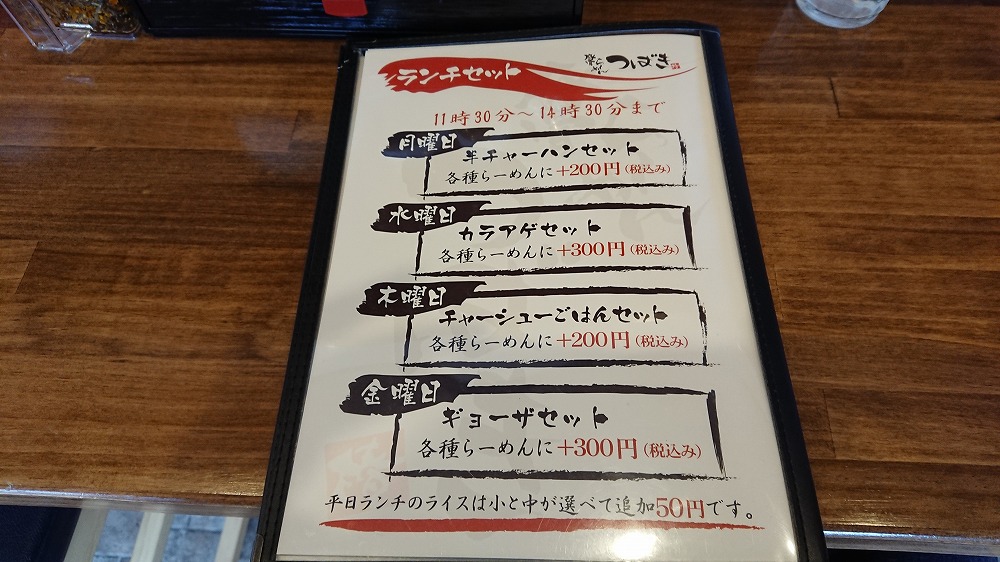 ランチセット
らーめん つばき
11時30分～14時30分まで
月曜日
半チャーハンセット
各種らーめんに+200円(税込み)
水曜日
カラアゲセット
各種らーめんに+300円(税込み)
木曜日
チャーシューごはんセット
各種らーめんに+200円(税込み)
金曜日
ギョーザセット
各種らーめんに+300円(税込み)
平日ランチのライスは小と中が選べて追加50円です。